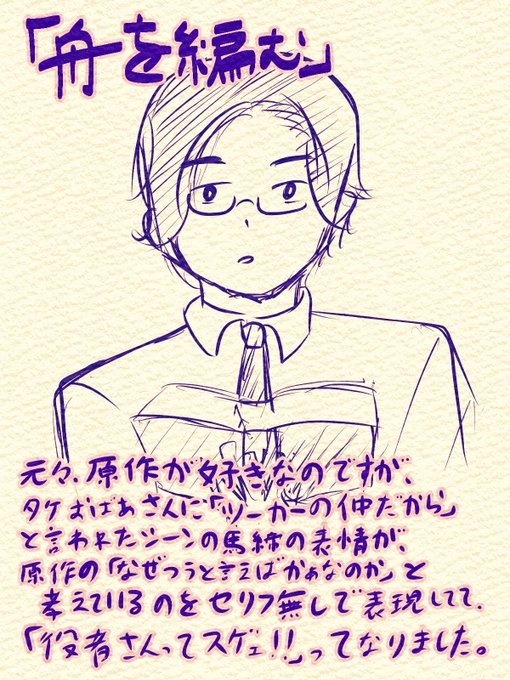 「舟を編む」
元々、原作が好きなのですが、
タケおばあさんに「ツーカーの仲だから」
と言われたシーンの馬締の表情が、
原作の「なぜつうと言えばかぁなのか」と
考えているのをセリフ無しで表現してて、
「役者さんってスゲェ!!」ってなりました。